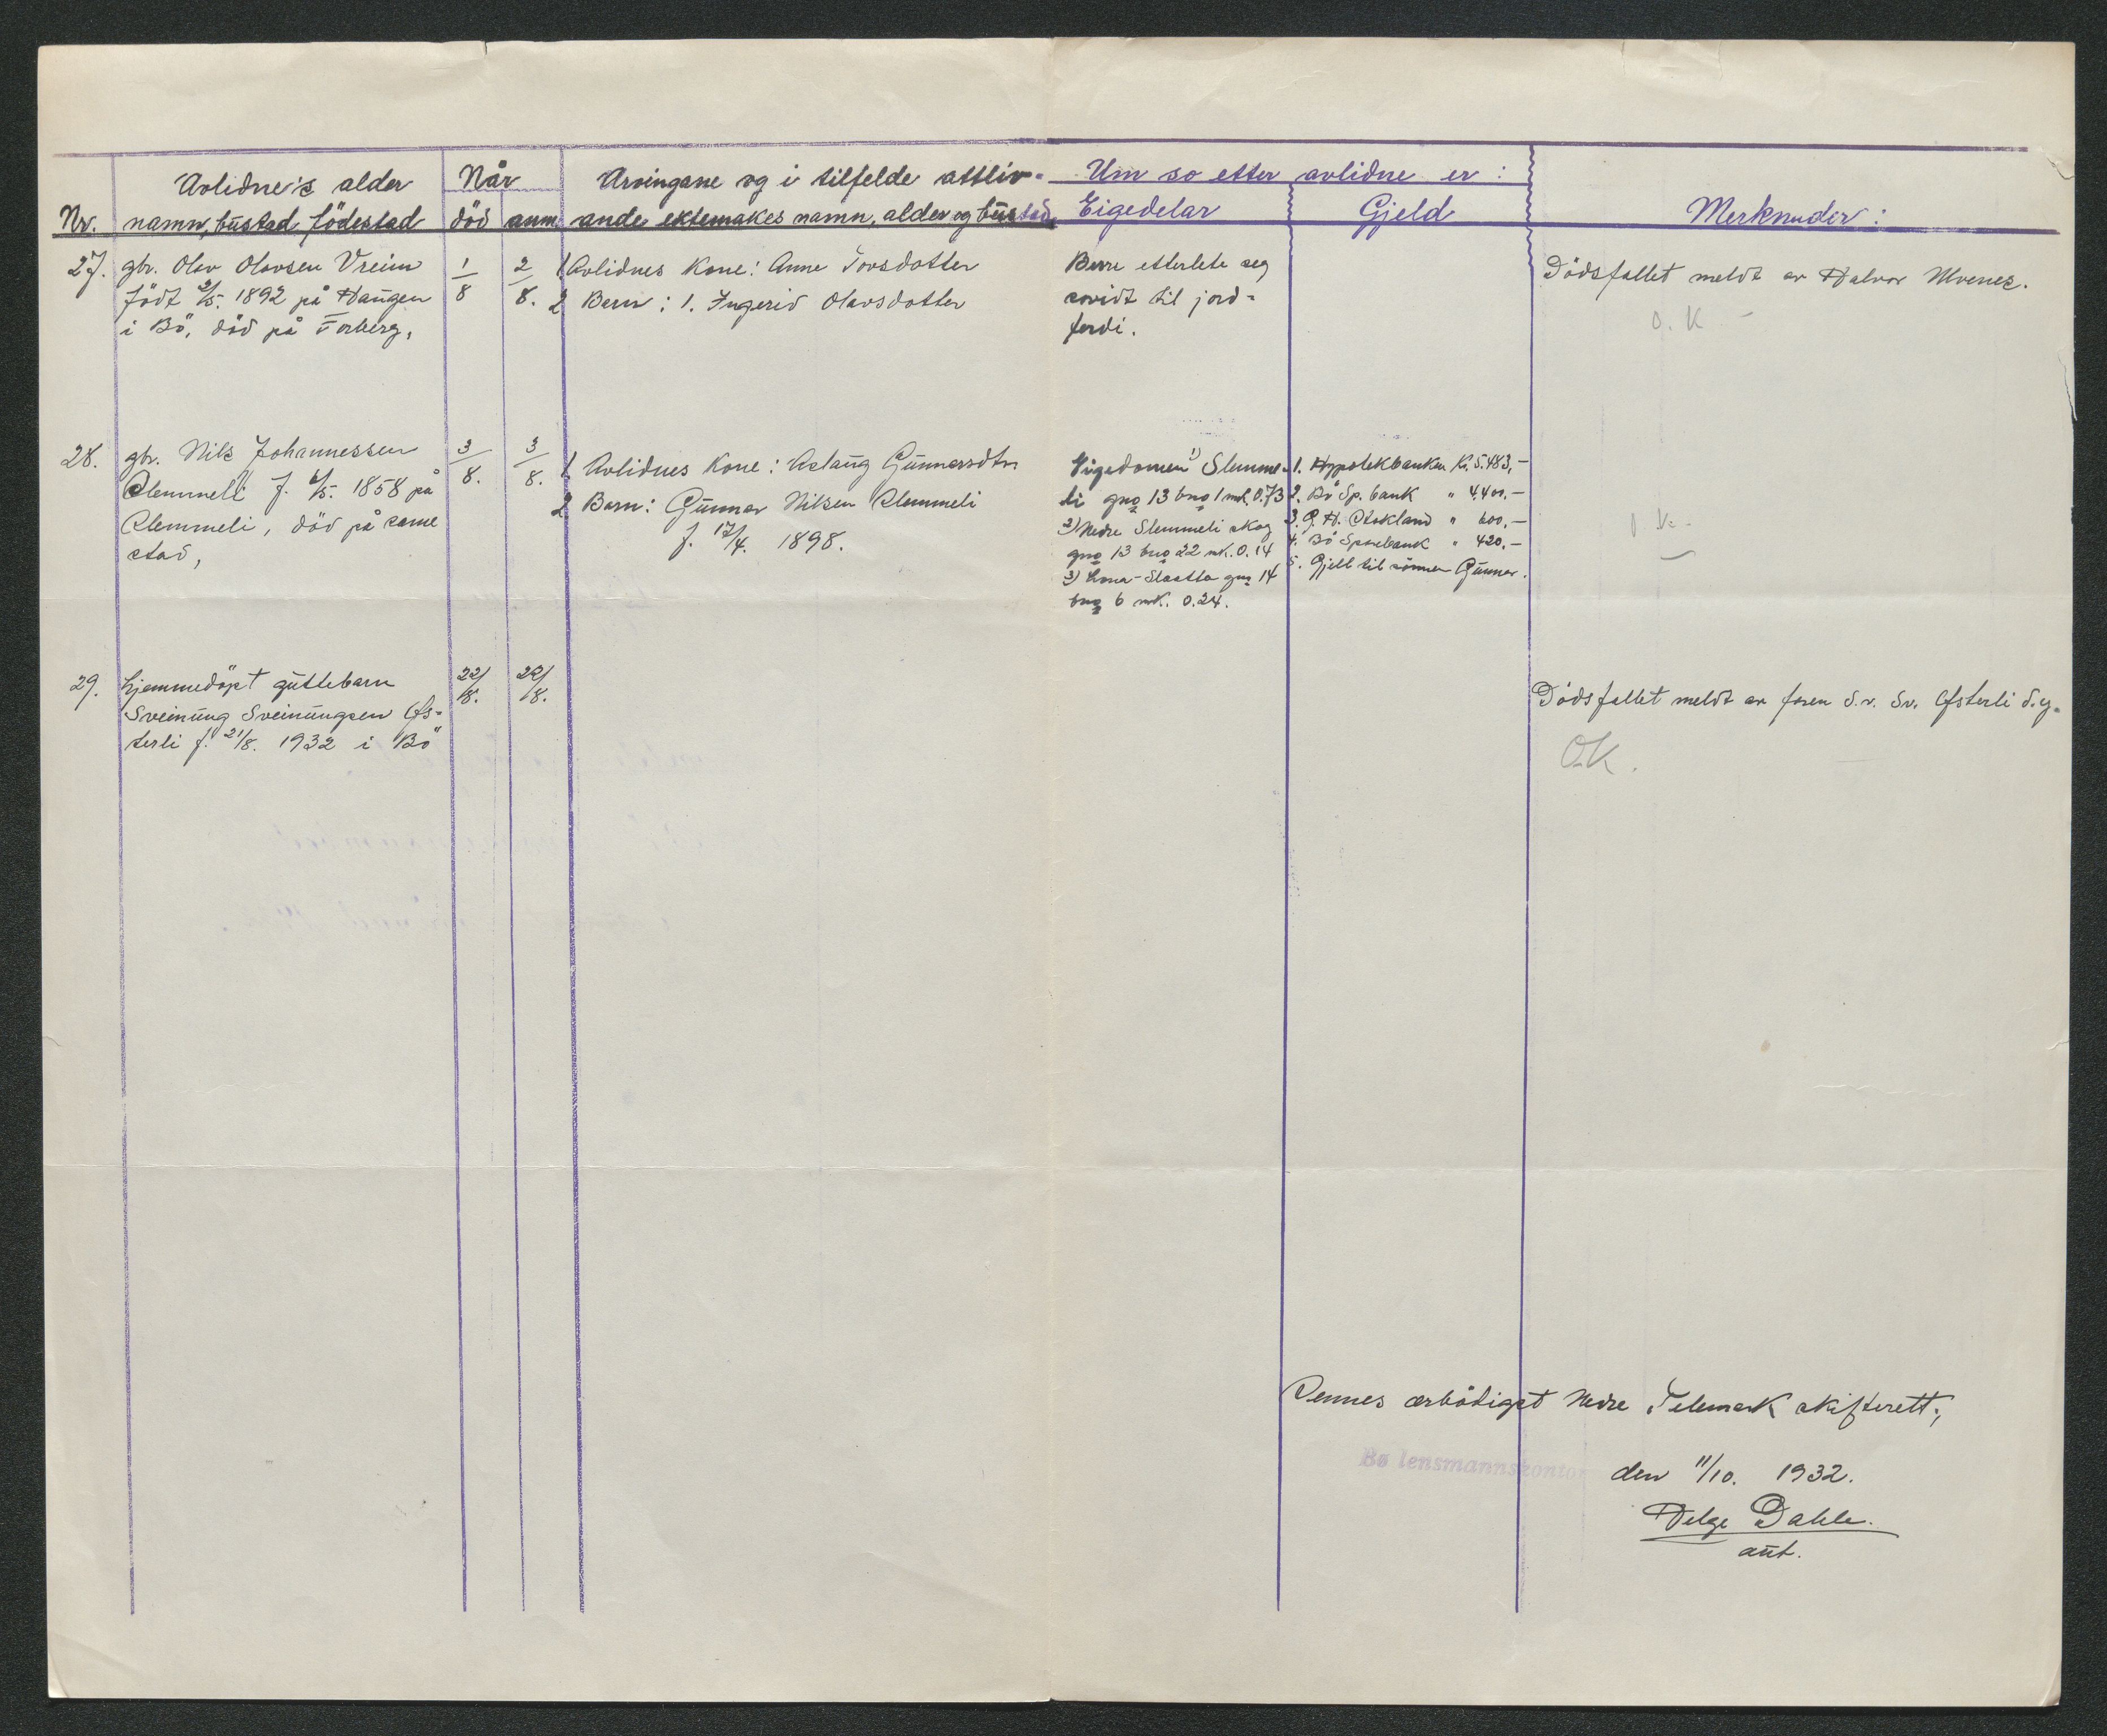 Avlidne's alder
Når
Arvingane og i tilfelde attliv-
Um so etter avlidne er:
Nr. namn, bustad, födestad
död anm.
ande ektemakes namn, alder og bustad
Eigedelar
Gjeld
Merknader:
27. gbr. Olav Olavsen Vreim
födt 2/5. 1892 på Haugen
i Bö, död på Forberg,
1/8
2/8.
1 Avlidnes Kone: Anne Tovsdotter
2 Barn: 1. Ingerid Olavsdotter
Berre etterlete seg
sovidt til jord-
ferdi.
Dödsfallet meldt av Halvor Ulvenes.
O.K
28. gbr. Nils Johannessen
Slemmeli f. 6/5. 1858 på
Slemmeli, död på same
stad,
3/8.
3/8.
1. Avlidnes Kone: Aslaug Gunnarsdtr
2 Barn: Gunnar Nilsen Slemmeli
f. 17/4. 1898.
Eigedomen 1) Slemme-
li gno 13 bno 1 mk. 0.73
2) Nedre Slemmeli skog
gno 13 bno 22 mk. 0.14
3) Lona-Slaatta gno 14
bno 6 mk. 0.24.
1. Hypotekbanken Kr. 5.483,-
2. Bö Sp. bank " 4.400.-
3. G. H. Stokland " 600,-
4. Bö Sparebank " 420,-
5. Gjeld til sönnen Gunnar.
O K.-
29. Hjemmedöpt guttebarn
Sveinung Sveinungsen Øs-
terli f. 21/8. 1932 i Bö
22/8.
29/8.
Dödsfallet meldt av faren S.v. Sv. Østerli d.y.
O.K.
Sennes ærbödigst Nedre Telemark skifterett,
Bø lensmannskontor
den 11/10. 1932.
Helge Dahle.
aut.